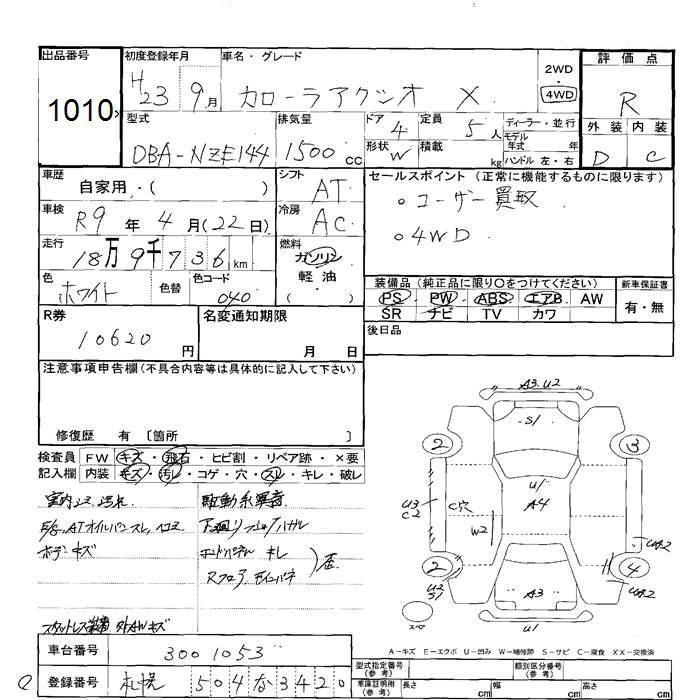 出品番号 初度登録年月 車名・グレード 2WD・4WD 評価点
1010 H23 9月 カローラアクシオ X R
型式 排気量 ドア 定員 ディーラー・並行 外装 内装
DBA-NZE144 1500cc 4 5人 モデル年式 年 D C
形状 W 積載 kg ハンドル 左・右
車歴 自家用・( ) シフト AT セールスポイント (正常に機能するものに限ります)
車検 R9年 4月(22日) 冷房 AC 。ユーザー買取
走行 18万9千736km 燃料 ガソリン・軽油 ( ) 。4WD
色 ホワイト 色替 色コード 040
装備品 (純正品に限り○をつけてください) 新車保証書
PS PW ABS エアB AW 有・無
SR ナビ TV カワ
R券 10620円 名変通知期限 月 日 後日品
注意事項申告欄(不具合内容等は具体的に記入して下さい)
修復歴 有 〔箇所 〕
検査員 FW キズ・飛石・ヒビ割・リペア跡・×要
記入欄 内装 キズ・汚レ・コゲ・穴・スレ・キレ・破レ
駆動系異音
E/G、ATオイルパンスレ、ヘコミ
ボデーキズ
キレ
歪
A3.U2
S1
2 3
U1
A4
U3
C2
C穴
W2
UA2
2 4
U2
S1
A3
UA2
スペア
U1
A-キズ E-エクボ U-凹み W-補修跡 S-サビ C-腐食 XX-交換済
車台番号 3001053
登録番号 札幌 504 な 3420
型式指定番号 (参考) 類別区分番号 (参考)
車庫証明用 (参考) 長さ cm 幅 cm 高さ cm